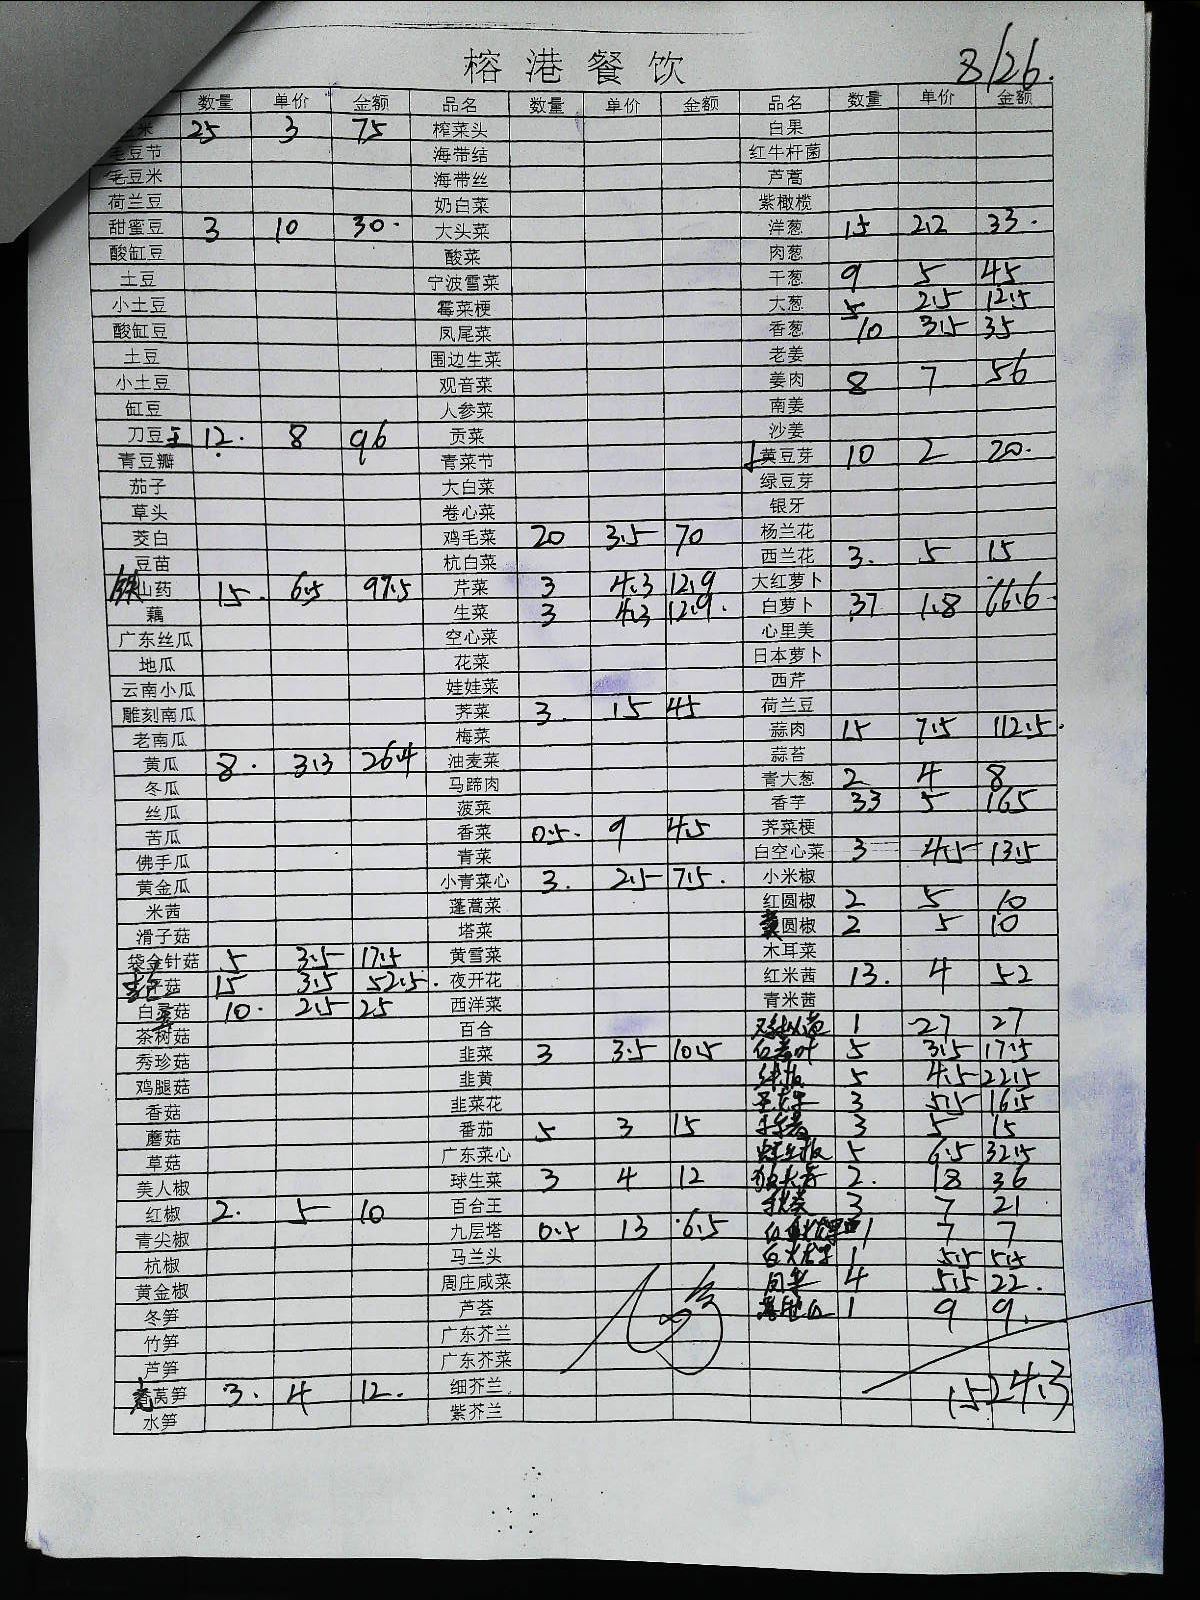 榕港餐饮 8/26.
数量 单价 金额 品名 数量 单价 金额 品名 数量 单价 金额
米 25 3 75 榨菜头 白果
毛豆节 海带结 红牛杆菌
毛豆米 海带丝 芦蒿
荷兰豆 奶白菜 紫橄榄
甜蜜豆 3 10 30. 大头菜 洋葱 15 2.2 33.
酸缸豆 酸菜 肉葱
土豆 宁波雪菜 干葱 9 5 45
小土豆 霉菜梗 大葱 5 2.5 12.5
酸缸豆 凤尾菜 香葱 10 3.5 35
土豆 围边生菜 老姜
小土豆 观音菜 姜肉 8 7 56
缸豆 人参菜 南姜
刀豆王 12. 8 96 贡菜 沙姜
青豆瓣 青菜节 黄豆芽 10 2 20.
茄子 大白菜 绿豆芽
草头 卷心菜 银牙
茭白 鸡毛菜 20 3.5 70 杨兰花
豆苗 杭白菜 西兰花 3. 5 15
铁山药 15. 6.5 97.5 芹菜 3 4.3 12.9 大红萝卜
藕 生菜 3 4.3 12.9. 白萝卜 37 1.8 66.6.
广东丝瓜 空心菜 心里美
地瓜 花菜 日本萝卜
云南小瓜 娃娃菜 西芹
雕刻南瓜 荠菜 3. 15 45 荷兰豆
老南瓜 梅菜 蒜肉 15 7.5 112.5.
黄瓜 8. 3.3 26.4 油麦菜 蒜苔
冬瓜 马蹄肉 青大葱 2 4 8
丝瓜 菠菜 香芋 33 5 165
苦瓜 香菜 0.5. 9 4.5 荠菜梗
佛手瓜 青菜 白空心菜 3 4.5 13.5
黄金瓜 小青菜心 3. 2.5 7.5. 小米椒
米茜 蓬蒿菜 红圆椒 2 5 10
滑子菇 塔菜 黄圆椒 2 5 10
袋金针菇 5 3.5 17.5 黄雪菜 木耳菜
菇 15 3.5 52.5. 夜开花 红米茜 13. 4 52
白菇 10. 2.5 25 西洋菜 青米茜
茶树菇 百合 1 27 27
秀珍菇 韭菜 3 3.5 10.5 5 3.5 17.5
鸡腿菇 韭黄 5 4.5 22.5
香菇 韭菜花 3 5.5 16.5
蘑菇 番茄 5 3 15 3 5 15
草菇 广东菜心 5 6.5 32.5
美人椒 球生菜 3 4 12 2. 18 36
红椒 2. 5 10 百合王 3 7 21
青尖椒 九层塔 0.5 13 6.5 1 7 7
杭椒 马兰头 1 5.5 5.5
黄金椒 周庄咸菜 4 5.5 22.
冬笋 芦荟 1 9 9.
竹笋 广东芥兰
芦笋 广东芥菜
莴笋 3. 4 12. 细芥兰 1524.3
水笋 紫芥兰